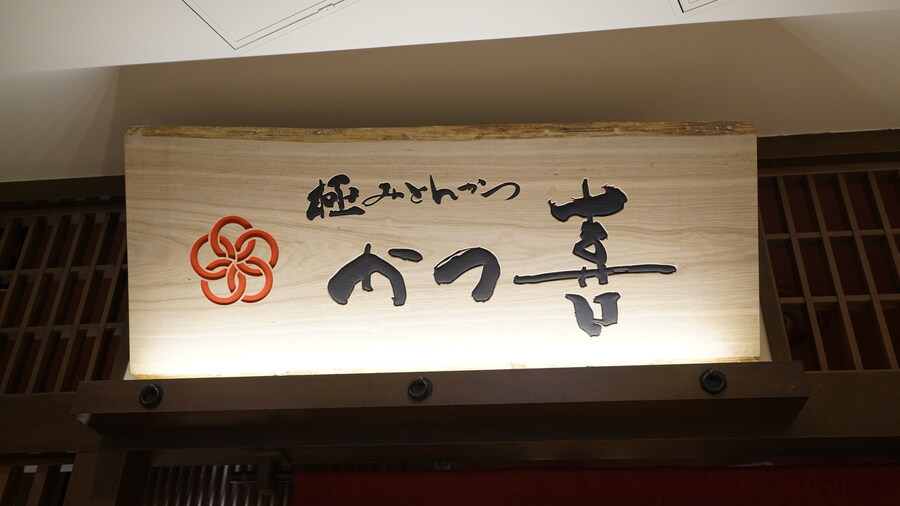 極みとんかつ
かつ喜